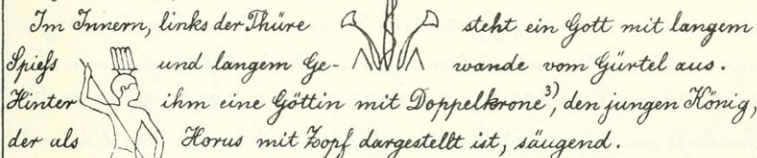 Im Innern, links der Thüre steht ein Gott mit langem
Spieſs und langem Ge- wande vom Gürtel aus.
Hinter ihm eine Göttin mit Doppelkrone³⁾, den jungen König,
der als Horus mit Zopf dargestellt ist, säugend.